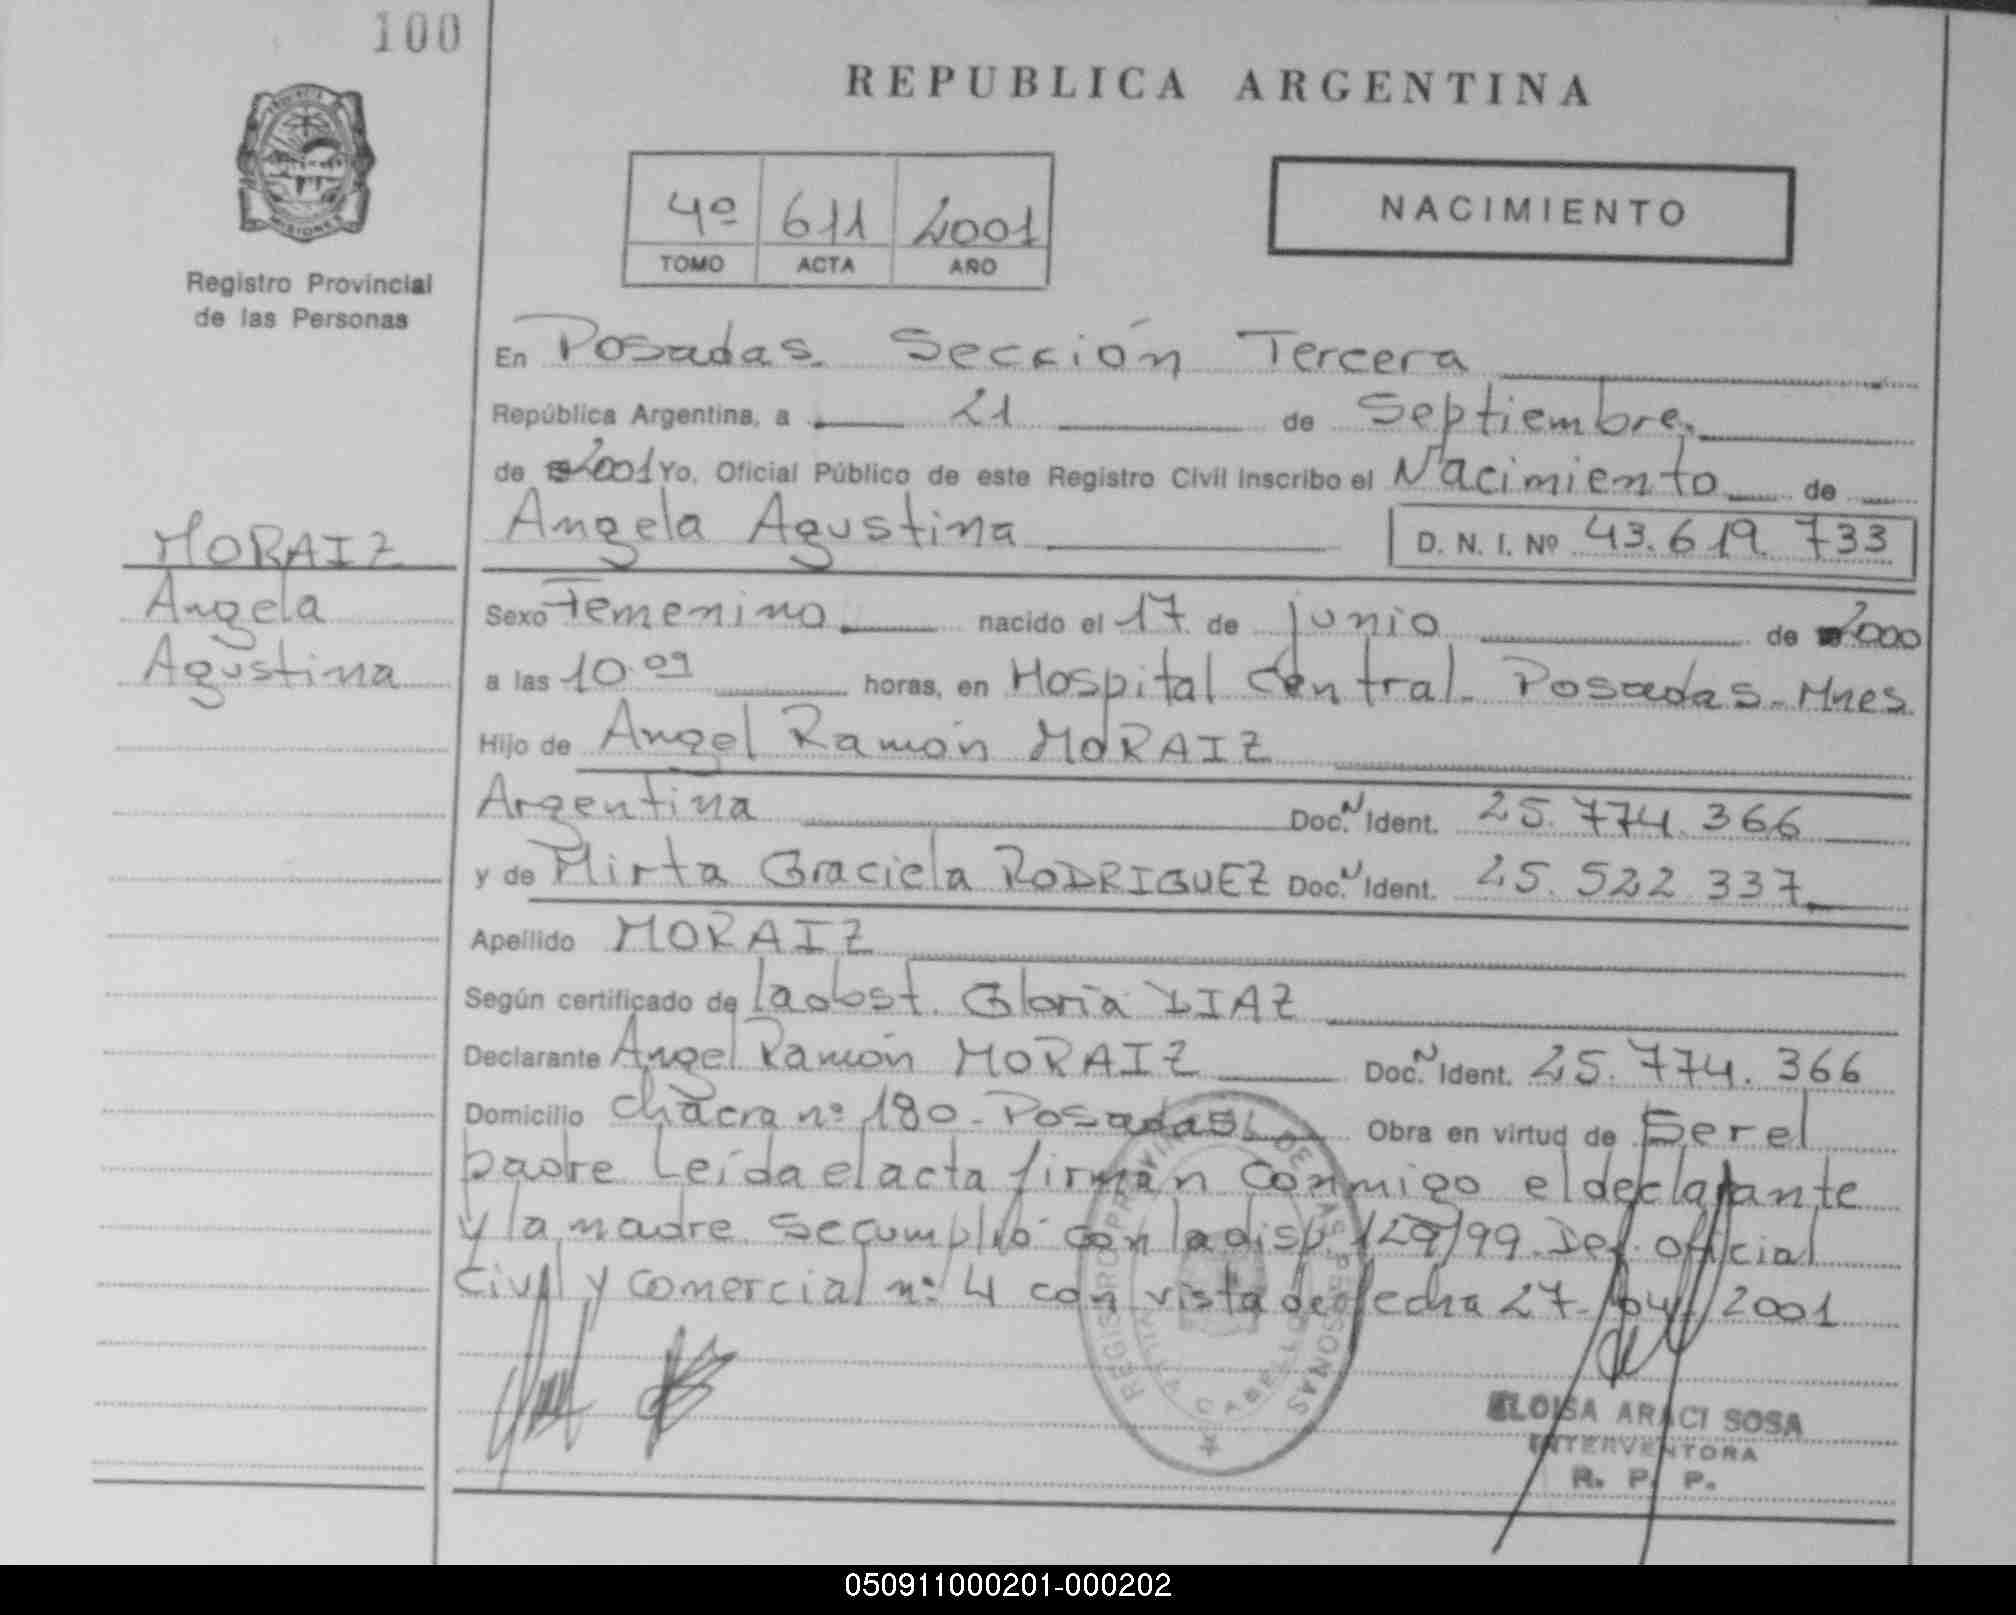 100
REPUBLICA ARGENTINA
4º 611 2001
TOMO ACTA AÑO
NACIMIENTO
Registro Provincial
de las Personas
MORAIZ
Angela
Agustina
En Posadas. Sección Tercera
República Argentina, a 21 de Septiembre.
de 2001 Yo, Oficial Público de este Registro Civil Inscribo el Nacimiento de
Angela Agustina D. N. I. Nº 43.619.733
Sexo Femenino nacido el 17 de junio de 2000
a las 10.09 horas, en Hospital Central. Posadas-Mnes.
Hijo de Angel Ramón MORAIZ
Argentina Doc.N Ident. 25.774.366
y de Mirta Graciela RODRIGUEZ Doc.N Ident. 25.522.337
Apellido MORAIZ
Según certificado de la obst. Gloria DIAZ
Declarante Angel Ramón MORAIZ Doc.N Ident. 25.774.366
Domicilio chacra nº 180-Posadas Obra en virtud de Ser el
padre Leída el acta firman conmigo el declarante
y la madre se cumplió con la disp. 129/99. Def. oficial
civil y comercial nº 4 con vista de fecha 27-/04/2001
REGISTRO PROVINCIAL DE LAS PERSONAS
ELOISA ARACI SOSA
INTERVENTORA
R. P. P.
050911000201-000202